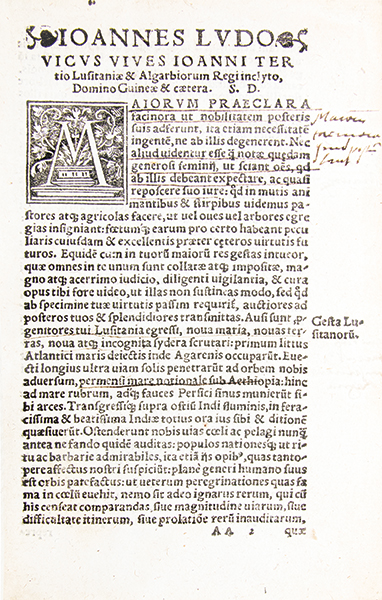 IOANNES LVDO
VICVS VIVES IOANNI TER
tio Lusitaniæ & Algarbiorum Regi inclyto,
Domino Guineæ & cætera. S. D.
MAIORVM PRAECLARA
facinora ut nobilitatem posteris
suis adferunt, ita etiam necessitatē
ingentē, ne ab illis degenerent. Nec
aliud uidentur esse q̄ notæ quædam
generosi seminis, ut sciant oēs, qd
ab illis debeant expectare, ac quasi
reposcere suo iure: qd in mutis ani
mantibus & stirpibus uidemus pa
stores atq; agricolas facere, ut uel oues uel arbores egre
gias insigniant: fœtumq; earum pro certo habeant pecu
liaris cuiusdam & excellentis præter cęteros uirtutis fu
turos. Equidē cum in tuorū maiorū res gestas intueor,
quæ omnes in te unum sunt collatæ atq; impositæ, ma
gno atq; acerrimo iudicio, diligenti uigilantia, & cura
opus tibi fore uideo, ut illas non sustineas modo, sed qd
ab specimine tuæ uirtutis passim requirit, auctiores ad
posteros tuos & splendidiores transmittas. Ausi sunt p
genitores tui Lusitania egressi, noua maria, nouas ter
ras, noua atq; incognita sydera scrutari: primum littus
Atlantici maris deiectis inde Agarenis occuparūt. Eue
cti longius ultra uiam solis penetrarunt ad orbem nobis
aduersum, permensi mare notionale sub Aethiopia: hinc
ad mare rubrum, adq; fauces Persici sinus munierūt si
bi arces. Transgressiq; supra ostiū Indi fluminis, in fera
cissima & beatissima Indiæ totius ora ius sibi & ditionē
quæsiuerūt. Ostenderunt nobis uias cœli ac pelagi nunq̄
antea ne fando quidē auditas: populos nationesq; ut ri
tu ac barbarie admirabiles, ita etiā ijs opib⁹, quas tanto-
pere affectus nostri suspiciūt: planè generi humano suus
est orbis patefactus: ut ueterum peregrinationes quas fa
ma in cœlū euehit, nemo sit adeo ignarus rerum, qui cū
his censeat comparandas, siue magnitudine uiarum, siue
difficultate itinerum, siue prolatiōe rerū inauditarum,
AA 2 quæ
Gesta Lu-
sitanorū.